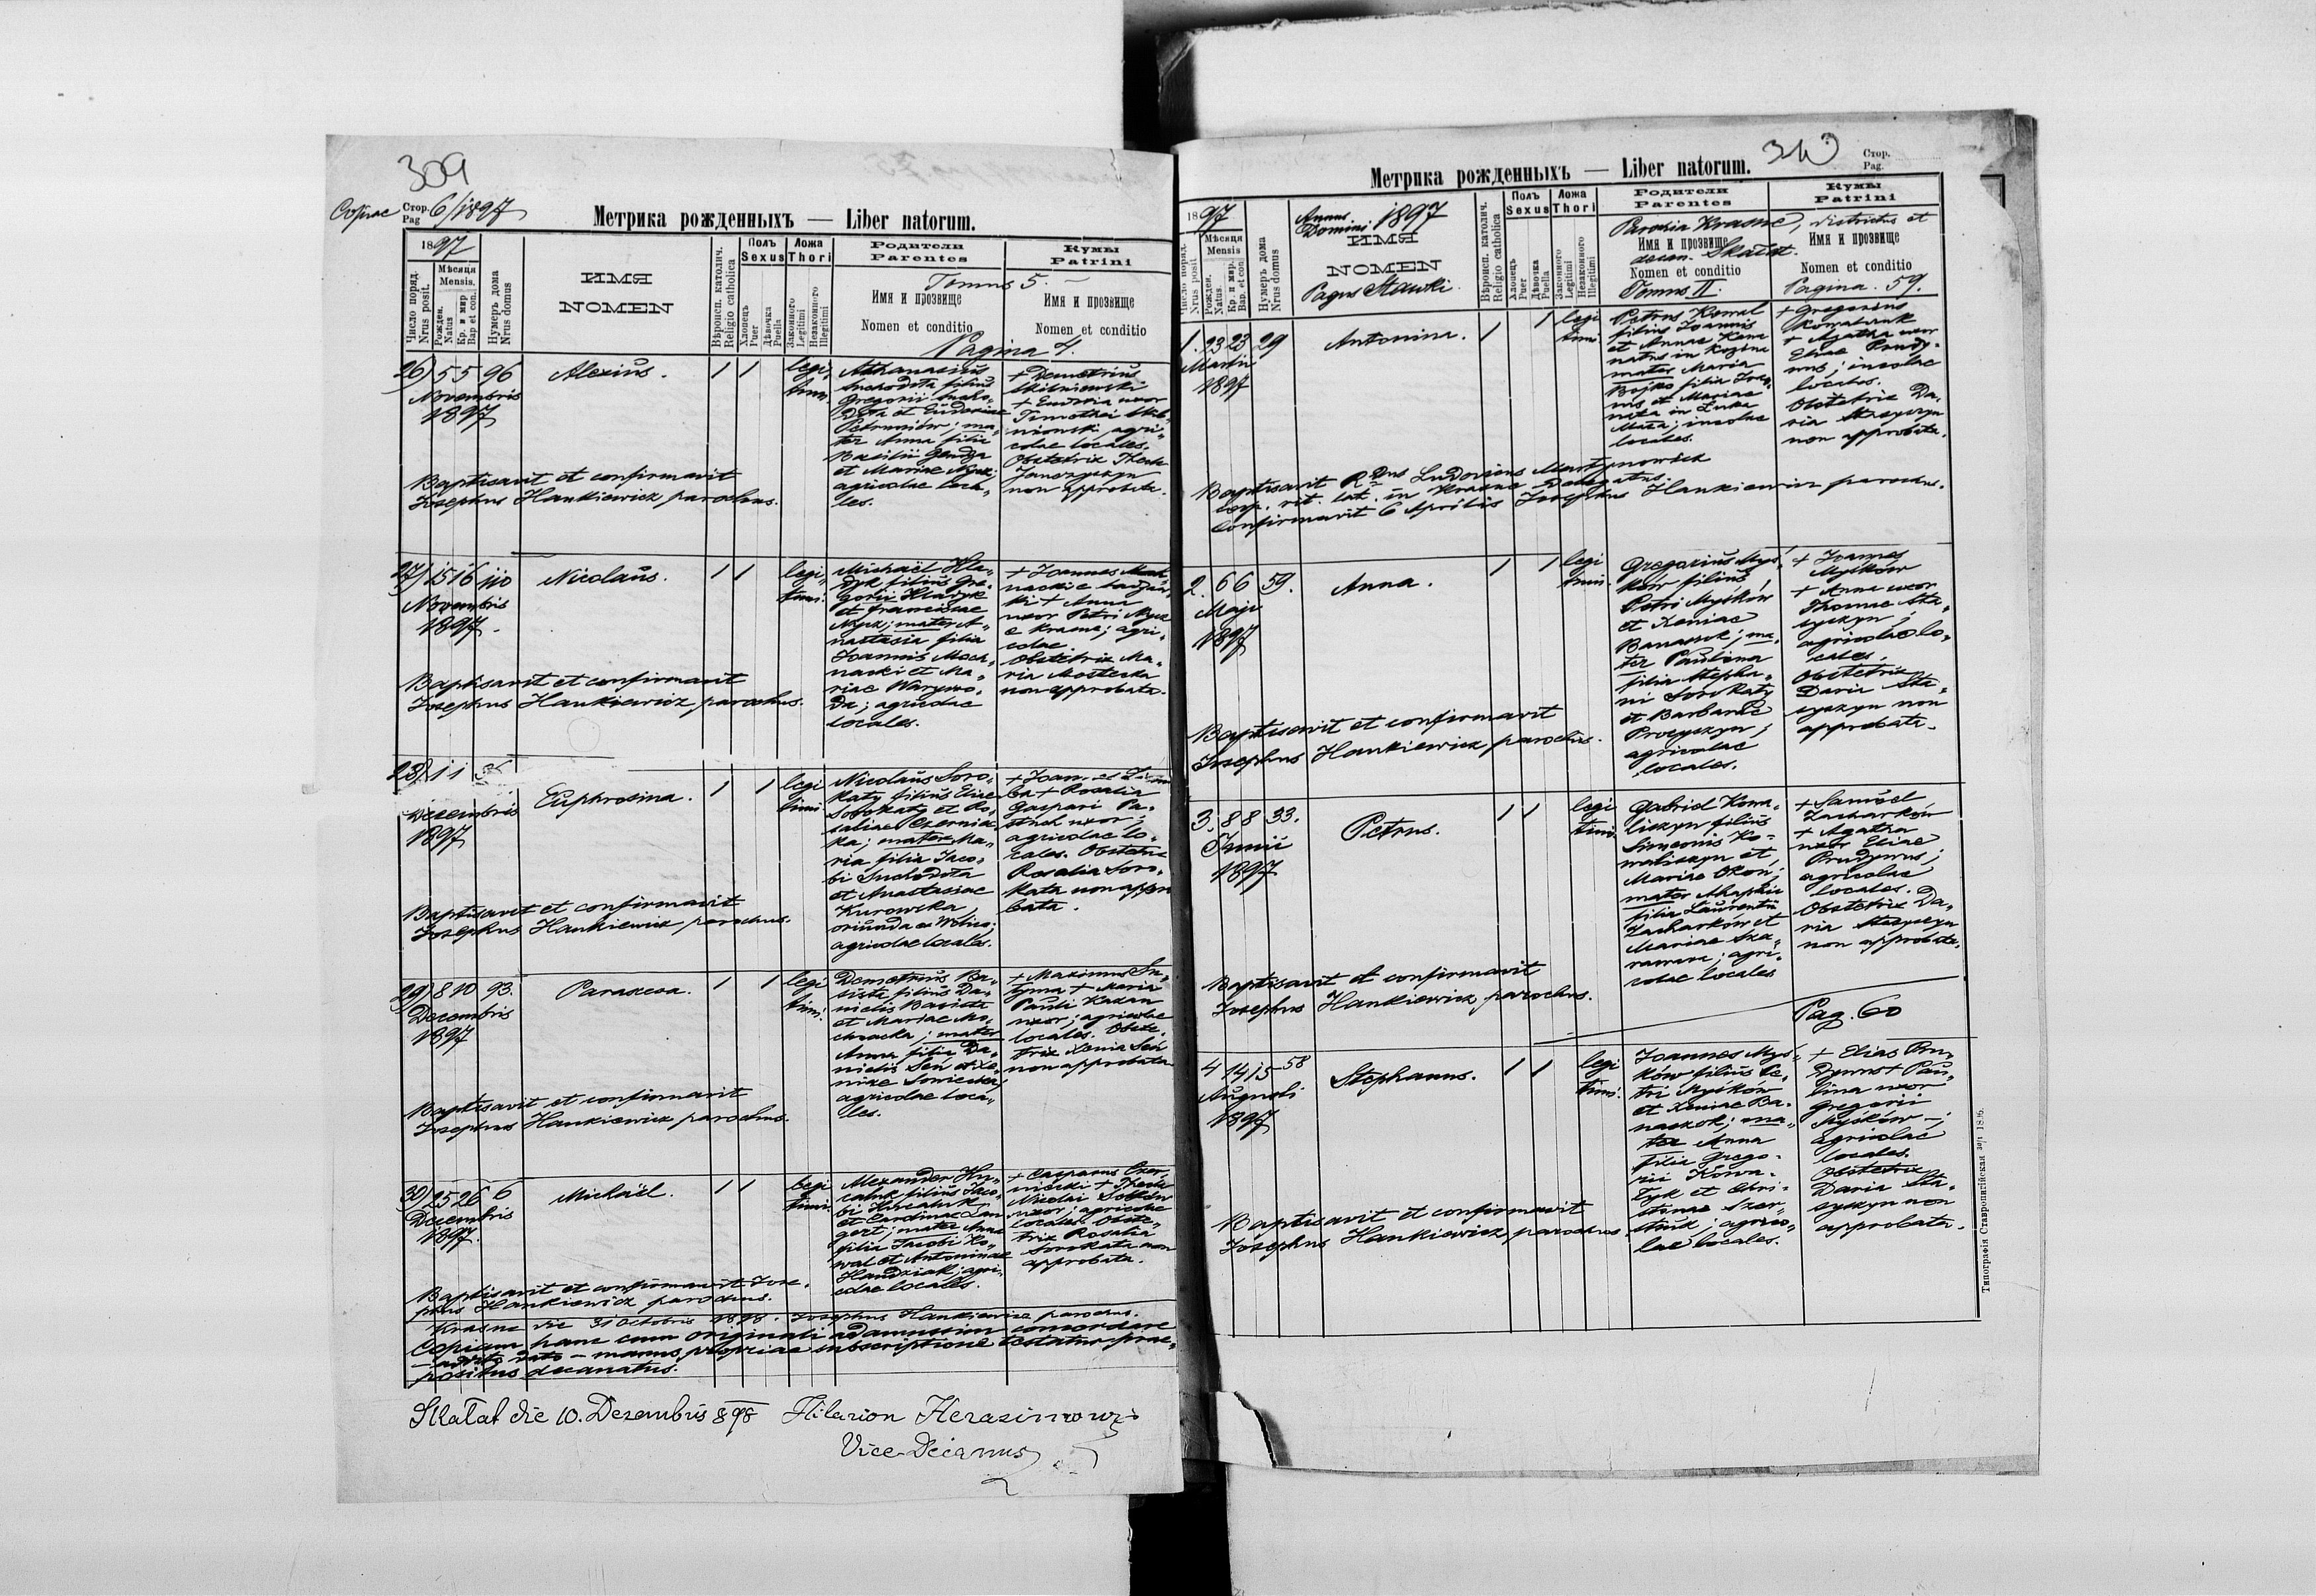 309
Copiae Стор. Pag 6/1897
Метрика рожденныхъ — Liber natorum.
1897
Число поряд. Nrus posit.
Мѣсяця Mensis.
Рожден. Natus
Кр. и мир. Bap et con.
Нумеръ дома Nrus domus
ИМЯ
NOMEN
Вѣроисп. католич. Religio catholica
Полъ Sexus
Хлопець Puer
Дѣвочка Puella
Ложа Thori
Законного Legitimi
Незаконного Illegitimi
Родители
Parentes
Кумы
Patrini
Tomus 5.
Имя и прозвище
Nomen et conditio
Имя и прозвище
Nomen et conditio
Pagina 4.
26) 5 5 96
Novembris
1897
Alexius.
1 1
legi-
timi
Athanasius
Suchodola filius
Gregorii Sucho-
dola et Eudoxiae
Petruniów; ma-
ter Anna filia
Basilii Gendza
et Mariae Nyck;
agricolae loca-
les.
+ Demetrius
+ Eudoxia uxor
Timothei
agri-
colae locales.
Obstetrix Thecla
Janczyszyn
non approbata.
Baptisavit et confirmavit
Josephus Hankiewicz parochus.
27) 15 16 110
Novembris
1897.
Nicolaus.
1 1
legi-
timi.
Michaël Hla-
dyk filius Gre-
gorii Hladyk
et Franciscae
Nyck; mater A-
nastasia filia
Joannis Moch-
nacki et Ma-
riae Warywo-
da; agricolae
locales.
+ Joannes Moch-
nacki e
+ Anna
uxor Petri Nyck
e Krasne; agri-
colae.
Obstetrix Ma-
ria Mosteska
non approbata.
Baptisavit et confirmavit
Josephus Hankiewicz parochus.
28) 1 1
Decembris
1897
Euphrosina.
1 1
legi
timi
Nicolaus Soro-
katy filius Eliae
Sorokaty et Ro-
saliae Czernic-
ka; mater Ma-
ria filia Jaco-
bi Suchodola
et Anastasiae
Kurowska
oriunda ex Wolica;
agricolae locales.
+ Rosalia
Gaspari Pa-
stuch uxor;
agricolae lo-
cales. Obstetrix
Rosalia Soro-
kata non appro
bata.
Baptisavit et confirmavit
Josephus Hankiewicz parochus.
29) 8 10 93.
Decembris
1897
Parasceva.
1 1
legi
timi.
Demetrius Ba-
ista filius Da-
nielis Baista
et Mariae Mo-
chnacka; mater
Anna filia Da-
nielis Seń et Xe-
niae
agricolae loca-
les.
+ Maximus
+ Maria
Pauli Kazan
uxor; agricolae
locales. Obste-
trix Xenia Seń
non approbata
Baptisavit et confirmavit
Josephus Hankiewicz parochus.
30) 25 26 6
Decembris
1897.
Michaël.
1 1
legi
timi.
Alexander Hry-
caluk filius Jaco-
bi Hrycaluk
et Carolinae Lan-
gert; mater Anna
filia Jacobi Ko-
wal et Antoninae
Handziak; agri-
colae locales.
+ Casparus Czer-
niecki + Thecla
Nicolai
uxor; agricolae
locales. Obste-
trix Rosalia
Sorokata non
approbata.
Baptisavit et confirmavit Jose-
phus Hankiewicz parochus.
Krasne die 31 Octobris 1898. Josephus Hankiewicz parochus.
Copiam hanc cum originali adamussim concordare
manus propriae subscriptione testatur prae-
positus decanatus.
Skałat die 10. Decembris 898 Hilarion Herasimowicz
Vice-Decanus
Стор. Pag.
Метрика рожденныхъ — Liber natorum.
1897
Число поряд. Nrus posit
Мѣсяця Mensis
Рожден. Natus.
Кр. и мир. Bap. et con
Нумеръ дома Nrus domus
Annus
Domini 1897
ИМЯ
NOMEN
Pagus Stawki.
Вѣроисп. католич. Religio catholica
Полъ Sexus
Хлопець Puer
Дѣвочка Puella
Ложа Thori
Законного Legitimi
Незаконного Illegitimi
Родители
Parentes
Кумы
Patrini
Parocia Krasne, districtus et
Имя и прозвище
Имя и прозвище
decan. Skałat.
Nomen et conditio
Nomen et conditio
Tomus II.
Pagina. 59.
1. 23 23 29
Martii
1897
Antonina.
1 1
legi
timi
Petrus Kowal
filius Joannis
et Annae
natus in Kozina
mater Maria
Bojko filia Igna-
tii et Mariae
nata in Luka
Mała; incolae
locales.
+ Gregorius
Kowalczuk
+ Agatha uxor
Eliae Prudy-
wus; incolae
locales.
Obstetrix Da-
ria Stasyszyn
non approbata.
Baptisavit Rdus Ludovicus Martynowicz
coop. rit. lat. in Krasne Delegatus.
Confirmavit 6 Aprilis Josephus Hankiewicz parochus.
2. 6 6 59.
Maji
1897
Anna.
1 1
legi
timi.
Gregorius Myś-
ków filius
Petri Myśków
et Xeniae
Banaszok; ma-
ter Paulina
filia Stepha-
ni Sorokaty
et Barbarae
Procyszyn;
agricolae
locales.
+ Joannes
Myśków
+ Anna uxor
Thomae Sta-
syszyn;
agricolae lo-
cales.
Obstetrix
Daria Sta-
syszyn non
approbata.
Baptisavit et confirmavit
Josephus Hankiewicz parochus.
3. 8 8 33.
Junii
1897
Petrus.
1 1
legi
timi.
Gabriel Kowa-
liszyn filius
Simeonis Ko-
waliszyn et
Mariae Okoń;
mater Ahaphia
filia Laurentii
Zacharków et
Mariae
agri-
colae locales
+ Samoel
Zacharków
+ Agatha
uxor Eliae
Prudywus;
agricolae
locales.
Obstetrix Da-
ria Stasyszyn
non approbata.
Baptisavit et confirmavit
Josephus Hankiewicz parochus.
Pag. 60
4 14 15 58
Augusti
1897
Stephanus.
1 1
legi
timi.
Joannes Myś-
ków filius Pe-
tri Myśków
et Xeniae Ba-
naszok; ma-
ter Anna
filia Grego-
rii Kowa-
lyk et Chri-
stinae Szew-
czuk; agrico-
lae locales.
+ Elias Pru-
dywus + Pau-
lina uxor
Gregorii
Myśków;
agricolae
locales.
Obstetrix
Daria Sta-
syszyn non
approbata.
Baptisavit et confirmavit
Josephus Hankiewicz parochus
Типографія Ставропигійская